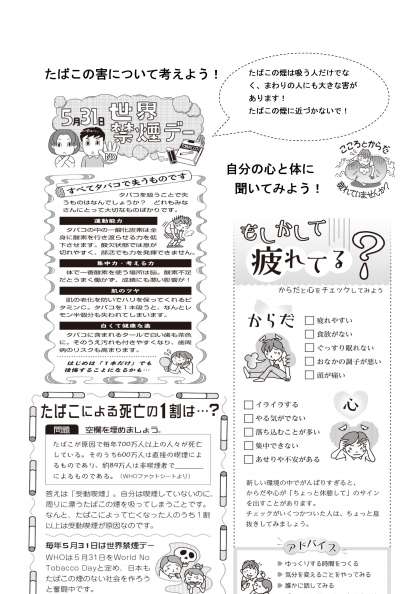 たばこの害について考えよう！
たばこの煙は吸う人だけでな
く、まわりの人にも大きな害が
あります！
たばこの煙に近づかないで！
5月31日 世界
禁煙デー
NO
すべてタバコで失うものです
タバコを吸うことで失
うものはなんでしょうか？ どれもみな
さんにとって大切なものばかりです。
運動能力
タバコの中の一酸化炭素は全
身に酸素を行き渡らせる力を低
下させます。酸欠状態では息が
切れやすく、部活でも力を発揮できません。
集中力・考える力
体で一番酸素を使う場所は脳。酸素不足
だとうまく働かず、成績にも悪い影響が！
肌のツヤ
肌の老化を防いでハリを保ってくれるビ
タミンC。タバコを1本吸うと、なんとレ
モン半個分も失われてしまいます。
白くて健康な歯
タバコに含まれるタールで白い歯も茶色
に。そのうえ汚れも付きやすくなり、歯周
病のリスクも高まります。
はじめは「1本だけ」でも
後悔することになるかも…
たばこによる死亡の1割は…？
問題 空欄を埋めましょう。
たばこが原因で毎年700万人以上の人々が死亡
している。そのうち600万人は直接の喫煙によ
るものであり、約89万人は非喫煙者で
によるものである。（WHOファクトシートより）
答えは「受動喫煙」。自分は喫煙していないのに、
周りに漂うたばこの煙を吸ってしまうことです。
なんと、たばこによって亡くなった人のうち1割
以上は受動喫煙が原因なのです。
毎年5月31日は世界禁煙デー
WHOは5月31日をWorld No
Tobacco Dayと定め、日本も
たばこの煙のない社会を作ろう
と奮闘中です。
自分の心と体に
聞いてみよう！
こころとからだ
疲れていませんか？
もしかして
疲れてる？
からだと心をチェックしてみよう
からだ
疲れやすい
食欲がない
ぐっすり眠れない
おなかの調子が悪い
頭が痛い
心
イライラする
やる気がでない
落ち込むことが多い
集中できない
あせりや不安がある
新しい環境の中でがんばりすぎると、
からだや心が「ちょっと休憩して」のサイン
を出すことがあります。
チェックがいくつかついた人は、ちょっと息
抜きしてみましょう。
アドバイス
ゆっくりする時間をつくる
気分を変えることをやってみる
誰かに話してみる